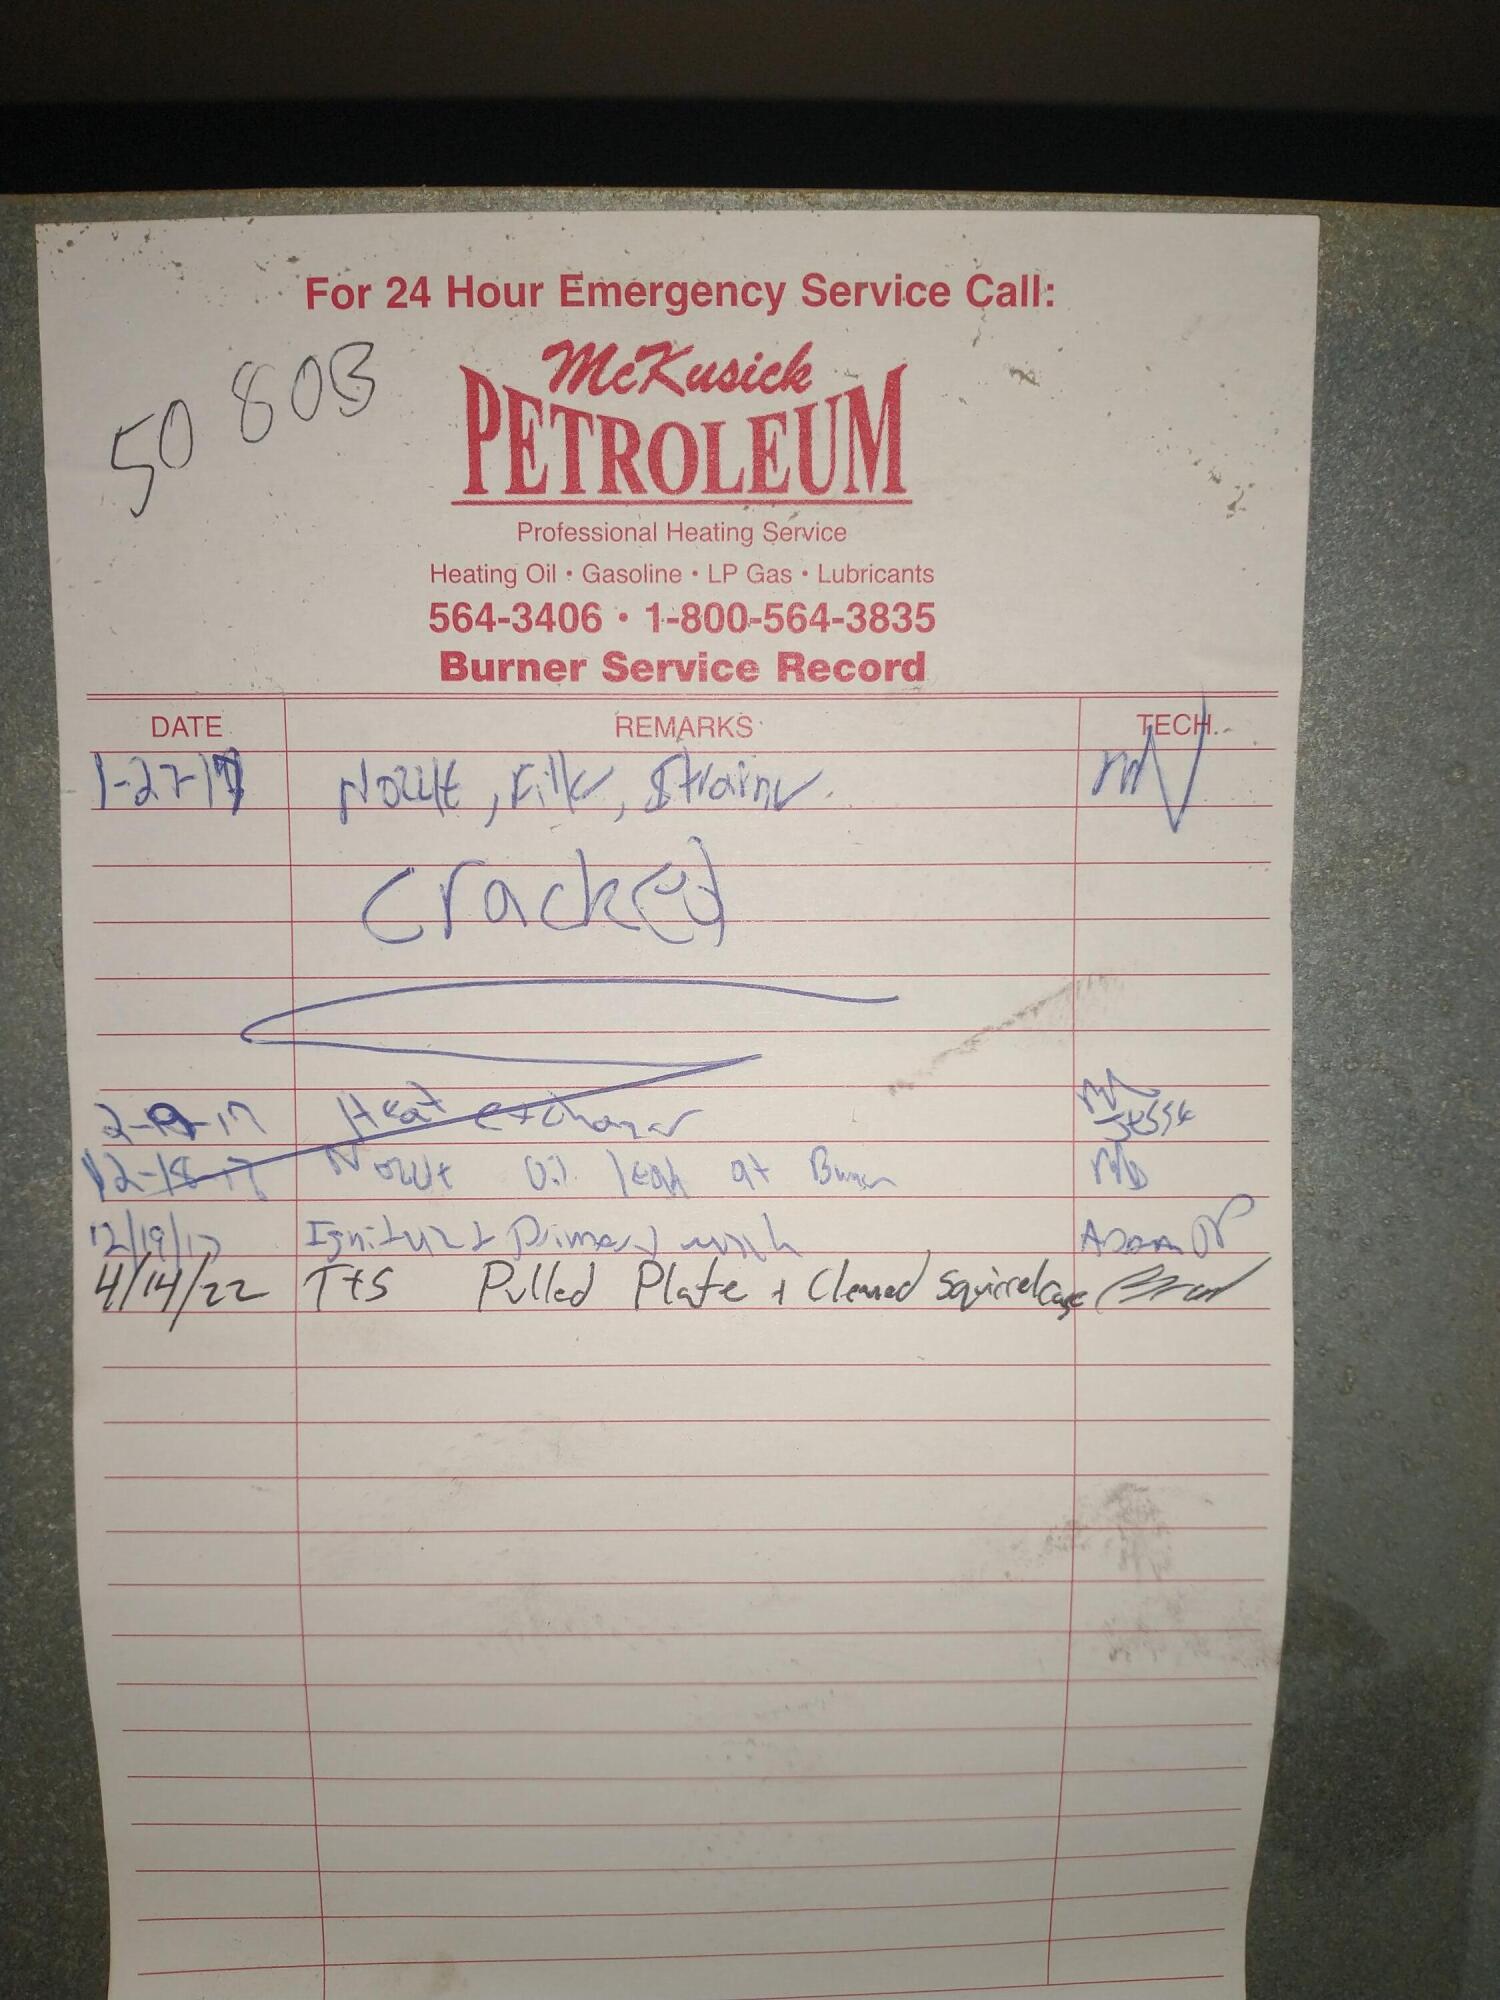 For 24 Hour Emergency Service Call:
50 80B
McKusick
PETROLEUM
Professional Heating Service
Heating Oil • Gasoline • LP Gas • Lubricants
564-3406 • 1-800-564-3835
Burner Service Record
DATE REMARKS TECH.
1-27-17 Nozzle, Filter, Strainer.
Cracked
Heat exchanger Jesse
12-18-17 Nozzle Oil leak at Burner
12/19/17 Ignitor & Primary Adam
4/14/22 T+S Pulled Plate + Cleaned Squirrelcage